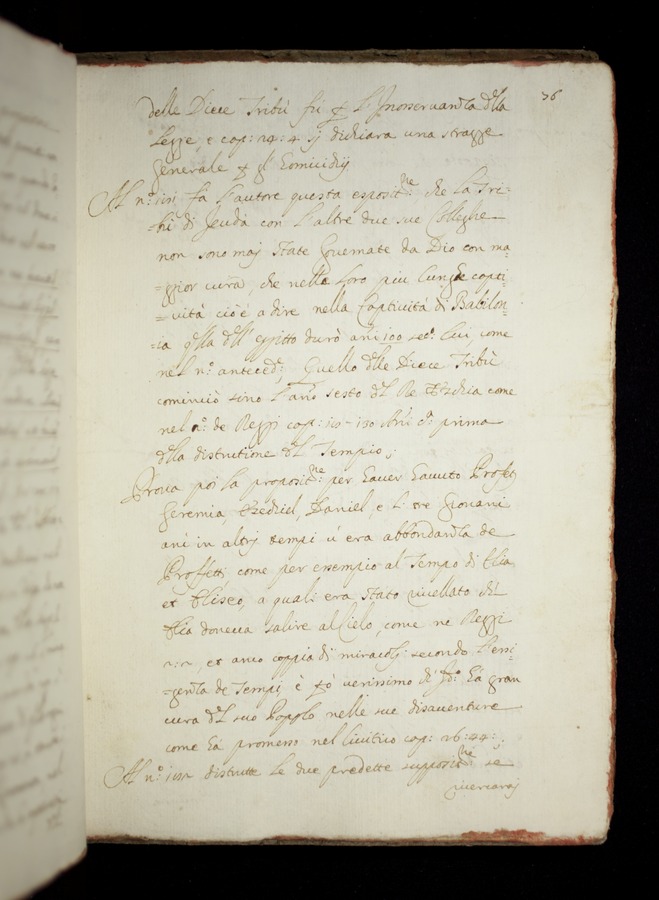 76
delle Diece Tribù fu p L'Inosservanza della
Legge, e cap: 24: 4 si dichiara una stragge
Generale p gl'Homicidij
Al n.º fa L'autore questa esposit.ne che La Tri-
bù di Jeuda con L'altre due sue Colleghe
non sono maj state Governate da Dio con ma=
=ggior cura, che nella Loro piu Lunga capti=
=vità cioè a dire nella Captività di Babilon=
=ia q.lla dell' egitto durò ani 100 sec.º Lui, come
nel n.º anteced.e Quello delle Diece Tribù
cominciò sino L'año sesto del Re Ezechia come
nel de Reggi cap: prima
della distrutione del Tempio;
Prova poi La proposit.ne per Haver Havuto Profeti
Geremia, Ezechiel, Daniel, e L: tre Giovani
ani in altrj tempi vi era abbondanza de
Proffetti, come per esempio al Tempo di Elia
et Eliseo, a quali era stato rivellato del
Elia doneva salire al Cielo, come ne Reggi
et anco coppia di miracolj secondo L'esi=
=genza de Tempi, è p.ò verissimo che Id.o Ha gran
cura del suo Popolo nelle sue disaventure
come Ha promesso nel Livitico cap: 26: 44:
Al n.º distrutte Le due predette supposit.ne se